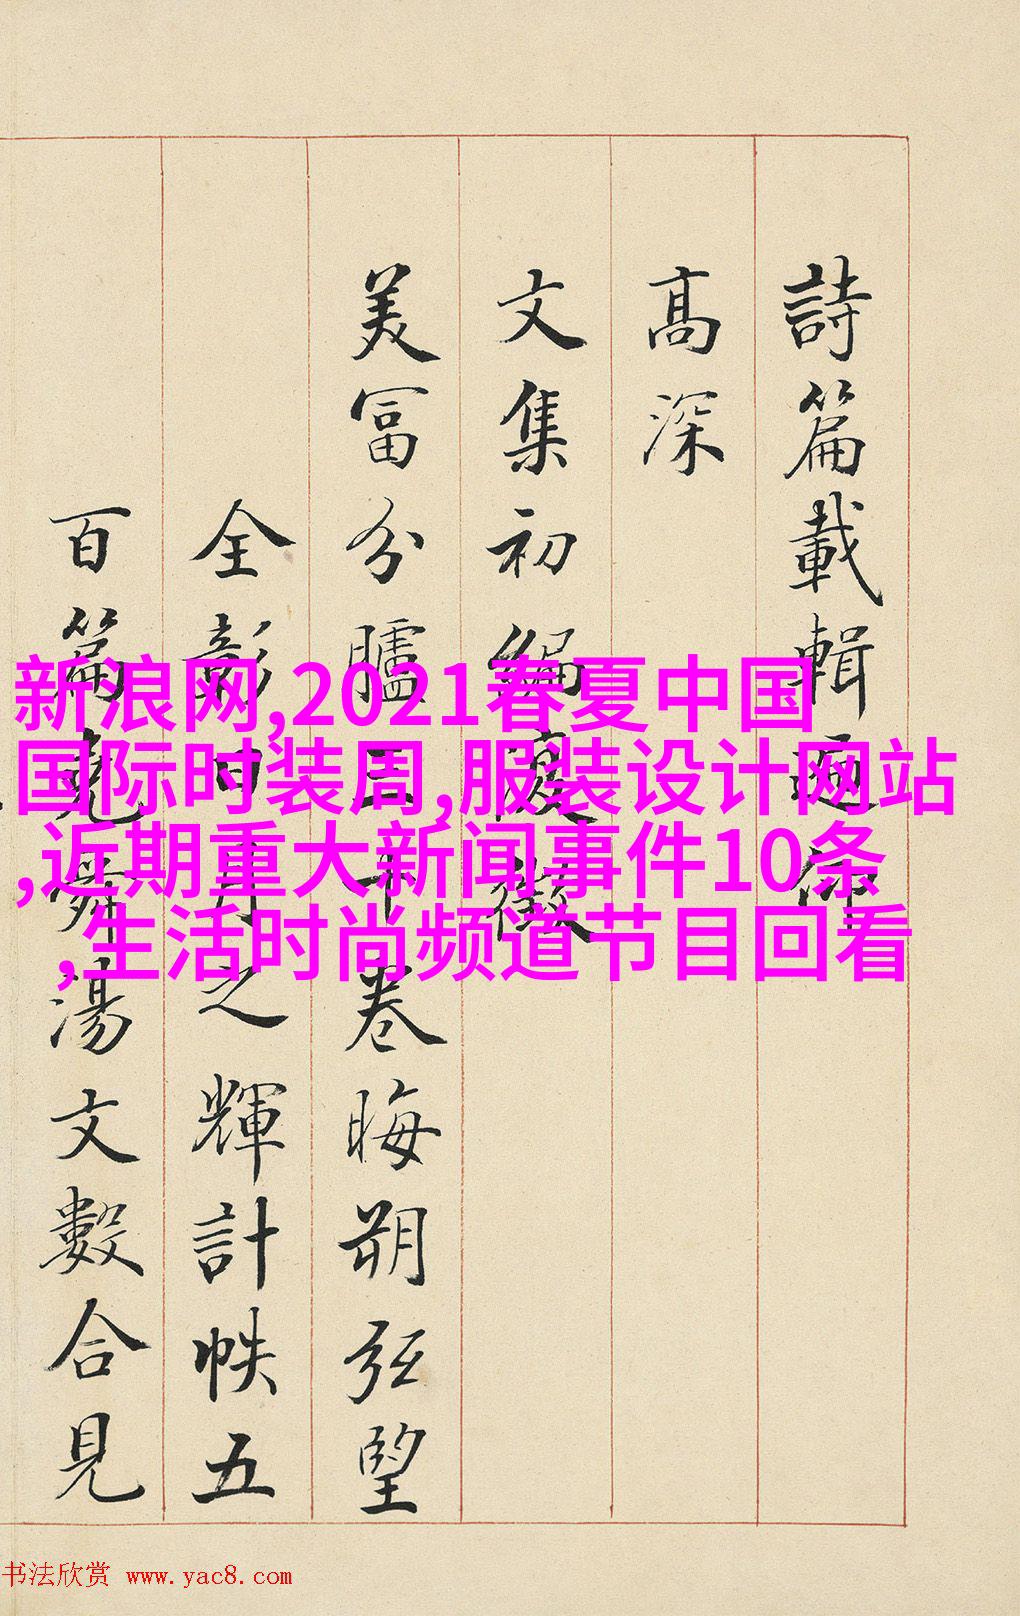 詩篇載輯仰
高深
文集初編徵
美富分臚三十卷晦朔弦望
全彰日月之輝計帙五
百篇堯舜湯文數合見
新浪网,2021春夏中国
国际时装周,服装设计网站
,近期重大新闻事件10条
,生活时尚频道节目回看
书法欣赏 www.yac8.com